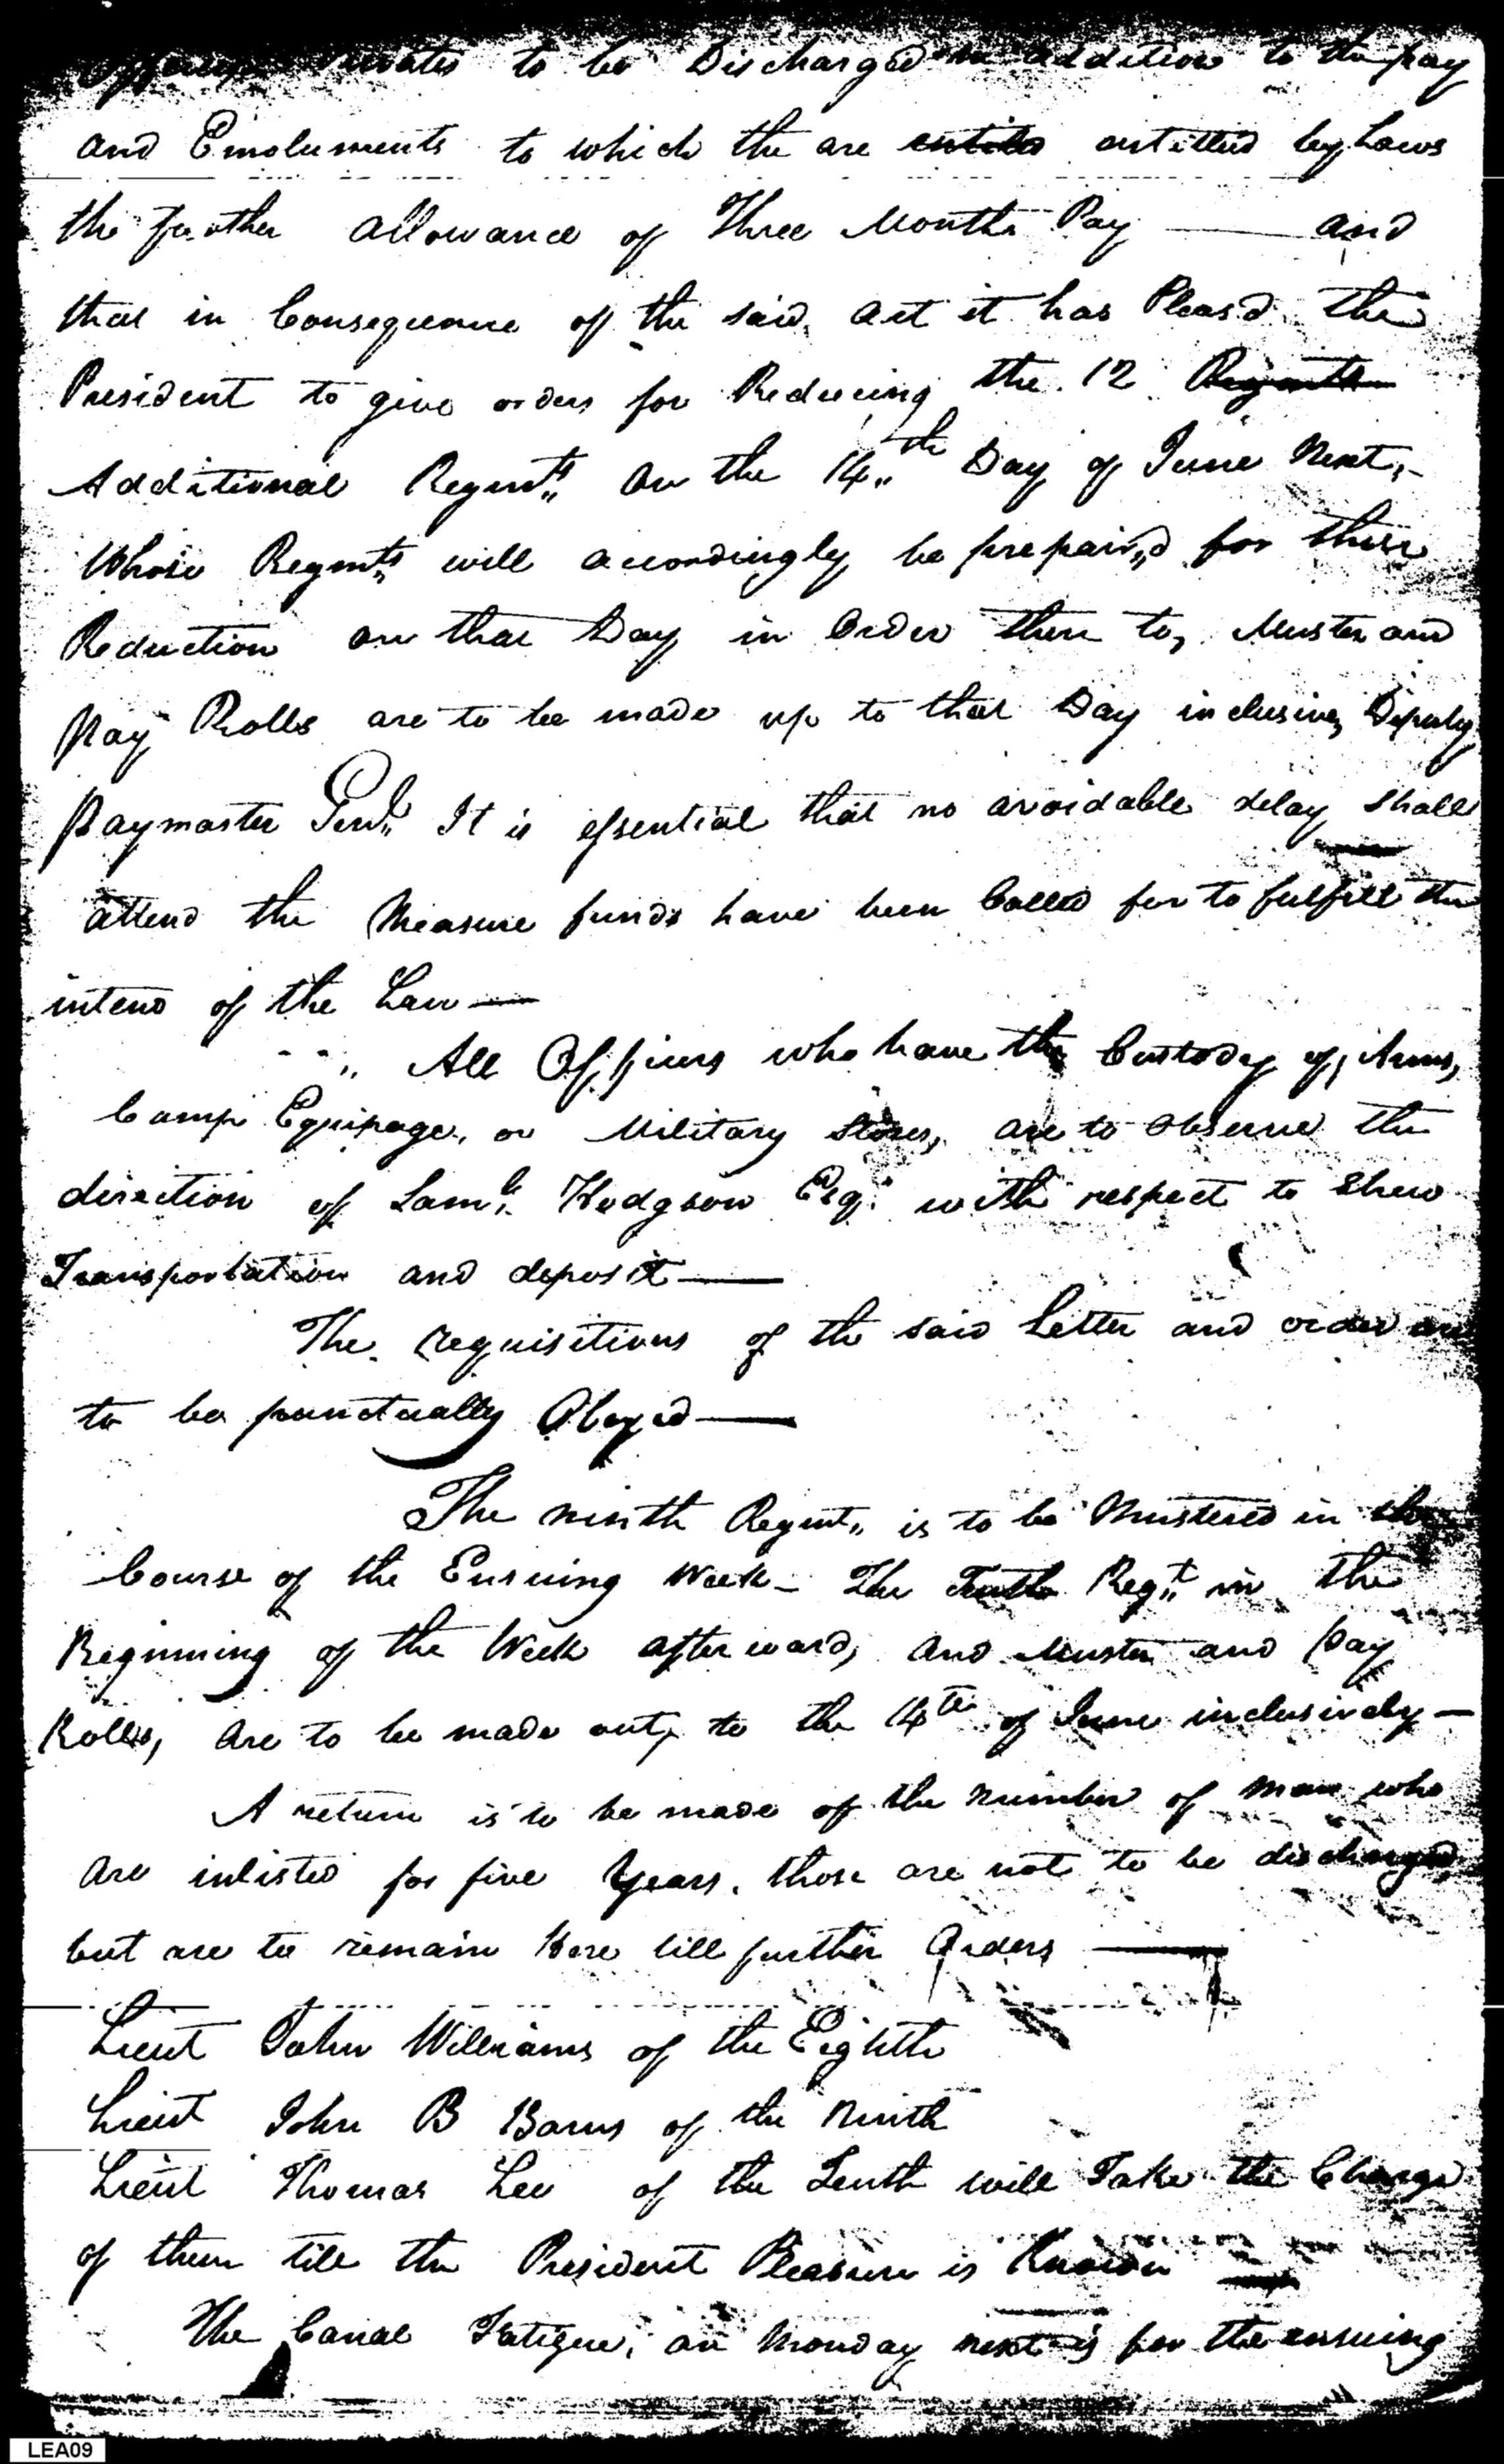 privates to be Discharged in addition to the pay
and Emoluments to which the are entitled entitled by Laws
the further allowance of Three Months Pay — and
that in Consequence of the said, act it has Pleas'd the
President to give orders for Reducing the 12 Regmts
Additional Regmts on the 14th Day of June Next,
Whose Regmts will accordingly be prepair,d for their
Reduction on that Day in Order there to, Muster and
Pay Rolls are to be made up to that Day inclusive, Deputy
Paymaster Genl. It is essential that no avoidable delay shall
attend the Measure funds have been Called for to fulfill the
intend of the Law —
All Officers who have the Custody of, Arms,
Camp Equipage, or Military Stores, are to observe the
direction of Saml. Hodgson Esq. with respect to
Transportation and deposit —
The requisitions of the said Letter and order are
to be punctually Obeyed —
The ninth Regmt. is to be Mustered in the
Course of the Ensuing Week — The Tenth Regt. in the
Beginning of the Week afterward, and Muster and Pay
Rolls, are to be made out, to the 14th of June inclusively —
A return is to be made of the number of men who
are inlisted for five Years, those are not to be discharged,
but are to remain here till further Orders —
Lieut John Williams of the Eighth
Lieut John B Barns of the Ninth
Lieut Thomas Lee of the Tenth will Take the Charge
of them till the President Pleasure is Known
The Canal Fatigue, on Monday next is for the ensuing
LEA09